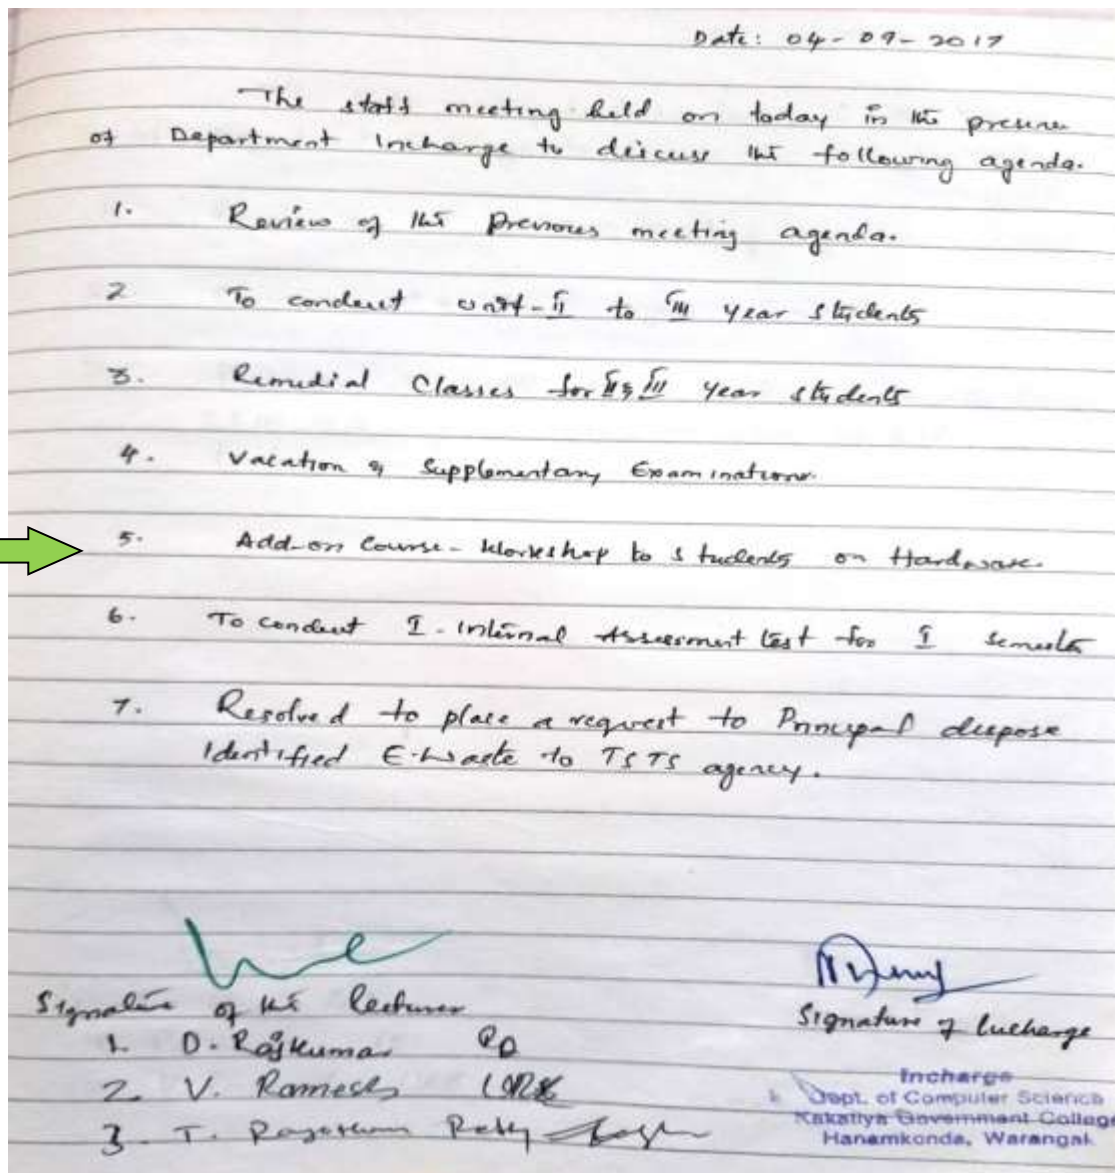 Date: 04-09-2017
The staff meeting held on today in the presence
of Department Incharge to discuss the following agenda.
1. Review of the Previous meeting agenda.
2 To conduct unit-II to III year students
3. Remedial Classes for II & III year students
4. Vacation & Supplementary Examinations.
5. Add-on Course - Workshop to students on Hardware.
6. To conduct I - Internal Assessment test for I semester
7. Resolved to place a request to Principal dispose
Identified E-Waste to TSTS agency.
Signature of the lecturer
Signature of Incharge
1. D. Rajkumar
2. V. Ramesh
3. T. Reddy
Incharge
Dept. of Computer Science
Kakatiya Government College
Hanamkonda, Warangal.